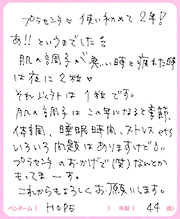 プラセンタ♡使い初めて2年!
あ!!というまでした
肌の調子が悪い時と疲れた時
は夜に2粒♡
それ以外は1粒です。
肌の調子はこの年になると季節、
体調、睡眠時間、ストレスetc
いろいろ問題はありますけど!!
プラセンタのおかげで(笑)なんとか
もってまーす。
これからもよろしくお願いします。
ペンネーム HOPE 年齢(44歳)